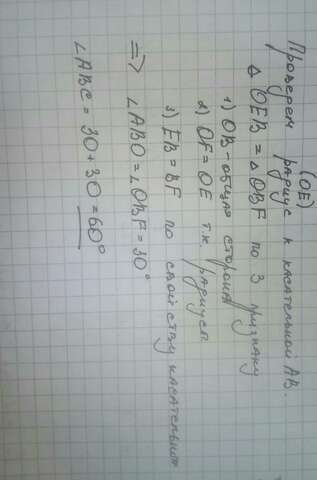 (OE)
Проведем радиус к касательной AB.
△ OEB = △ OBF по 3 признаку
1) OB - общая сторона
2) OF = OE т.к. радиусы
3) EB = BF по свойству касательных
=> ∠ABO = ∠OBF = 30°
∠ABC = 30 + 30 = 60°